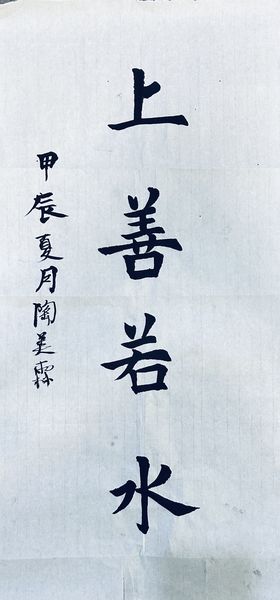 上善若水
甲辰夏月陶美霖